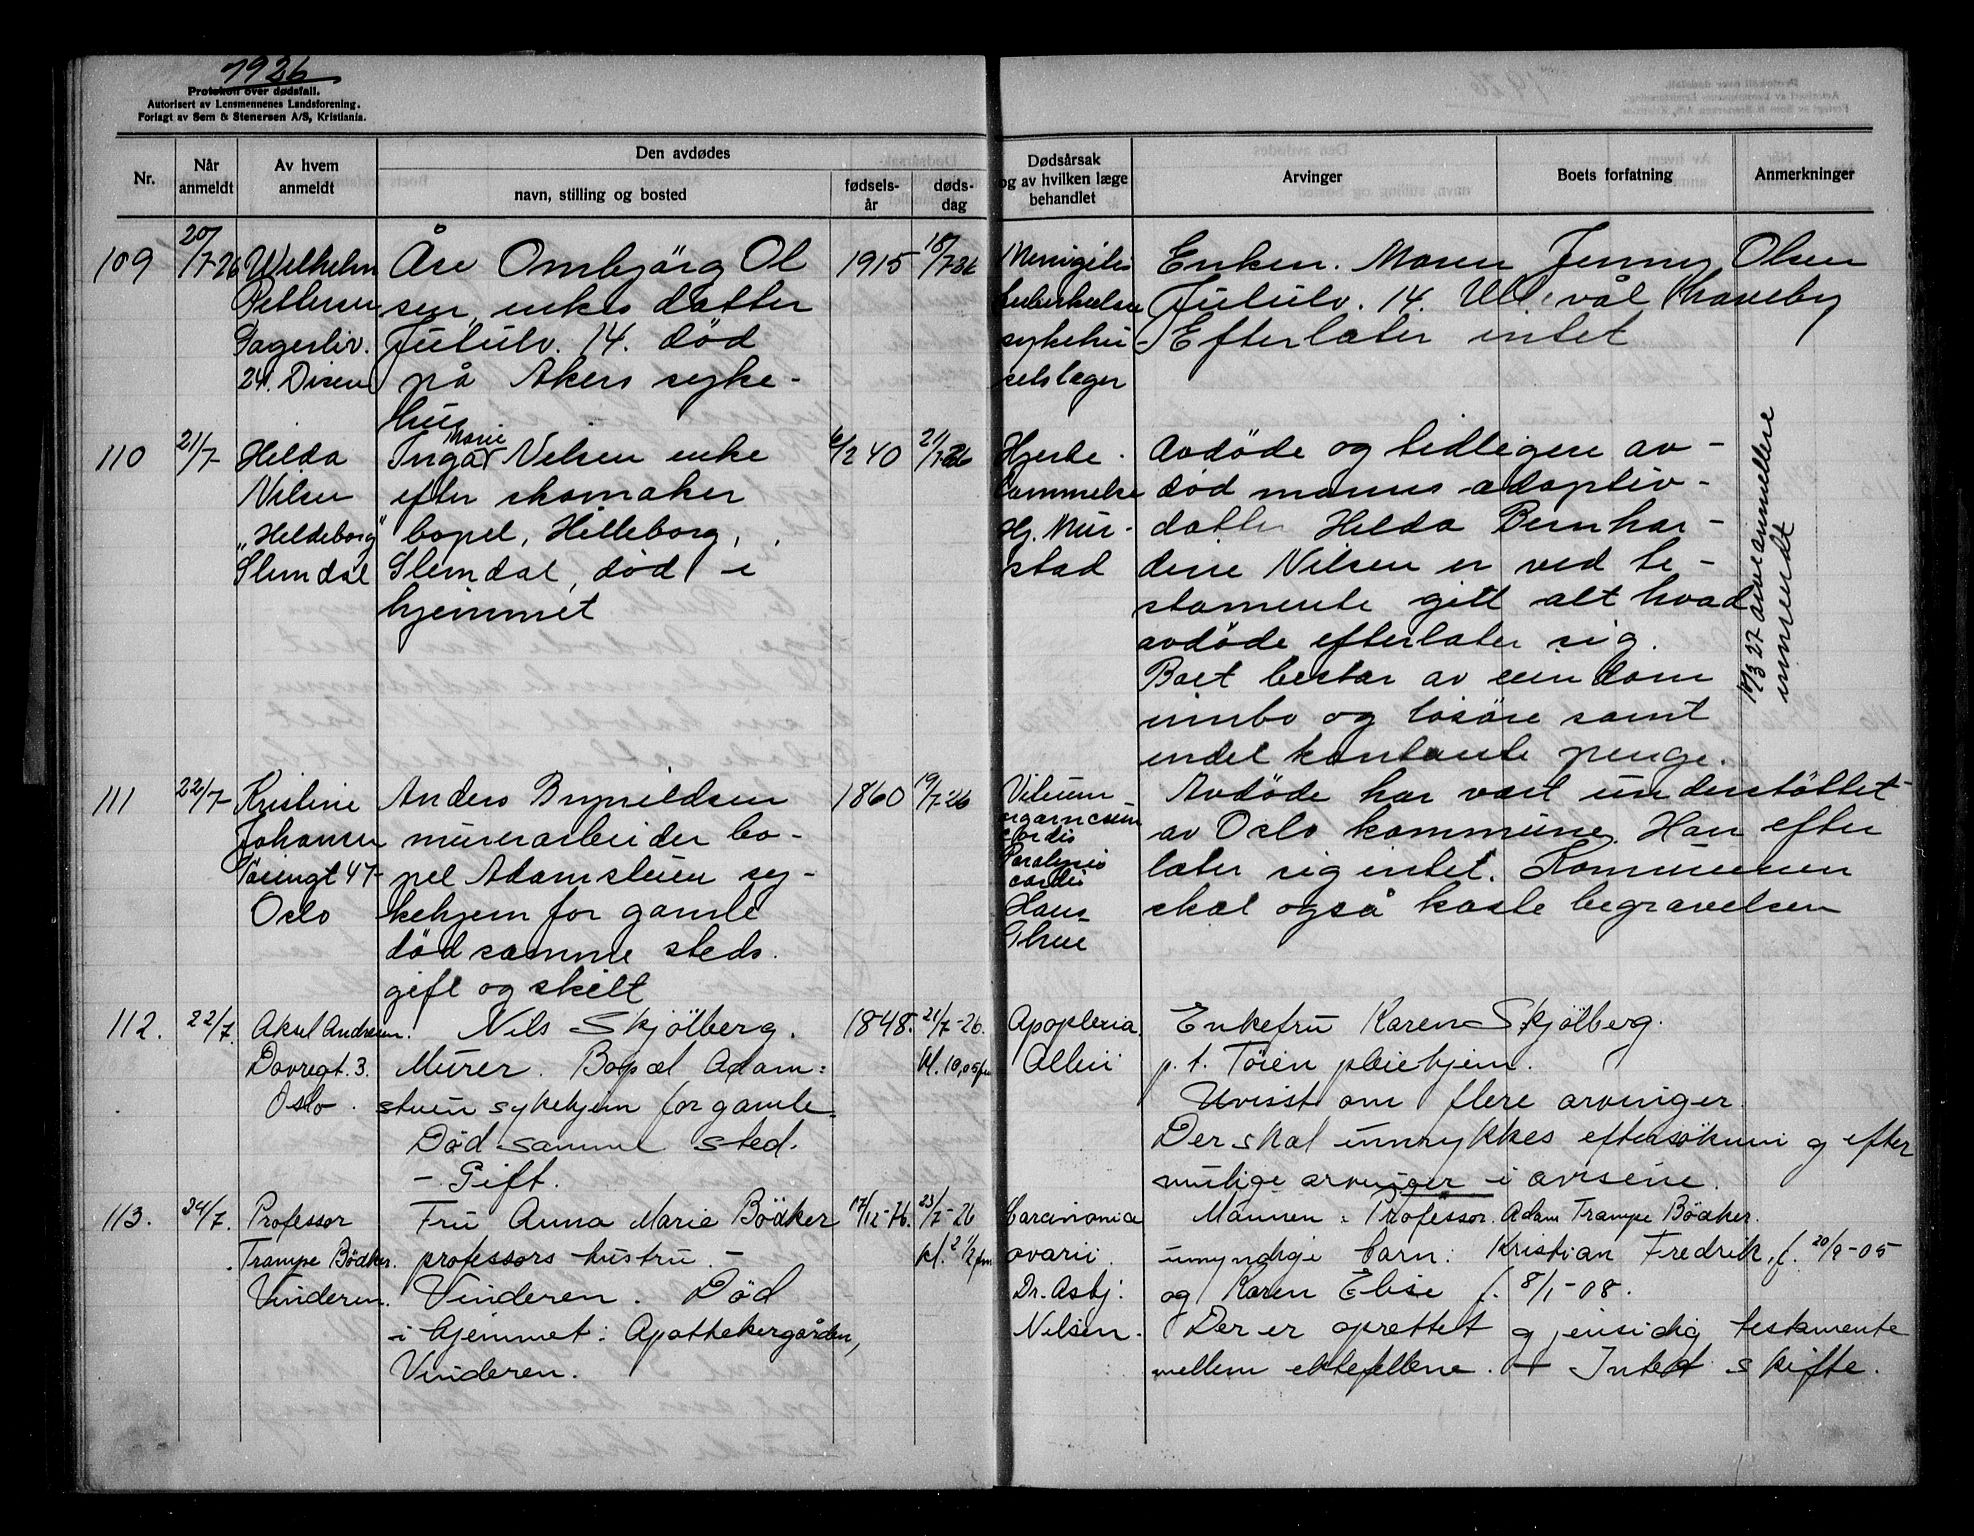 1926
Protokoll over dødsfall.
Autorisert av Lensmennenes Landsforening.
Forlagt av Sem & Stenersen A/S, Kristiania.
Nr.
Når anmeldt
Av hvem anmeldt
Den avdødes
navn, stilling og bosted
fødsels-år
døds-dag
Dødsårsak og av hvilken læge behandlet
Arvinger
Boets forfatning
Anmerkninger
109
20/7-26
Wilhelm
Pettersen
24. Disen
Åse Ombjørg Ol
sen, enkes datter
Jutulv. 14. død
på Akers syke-
hus
1915
18/7-26
sykehu-
selslæger
Enken. Maren Jenny Olsen
Jutulv. 14. Ullevål Haveby
Efterlater intet
110
21/7-
Hilda
Nilsen
"Heldeborg"
Slemdal
Inga Marie Nilsen enke
efter skomaker
bopel, Hilleborg,
Slemdal, død i
hjemmet
6/2 40
21/7-26
Hjerte-
lammelse
Hj. Mur-
stad
Avdøde og tidligere av-
død manns adoptiv-
datter Hilda Bernhar-
dine Nilsen er ved te-
stamente gitt alt hvad
avdøde efterlater sig.
Boet består av eiendom
innbo og løsøre samt
endel kontante penge.
10/3 27 arveanmeldelse
innsendt
111
22/7-
Kristine
Johansen
Tøiengt 47
Oslo
Anders Brynildsen
murerarbeider bo-
pel Adamstuen sy-
kehjem for gamle
død samme steds.
gift og skilt
1860
19/7-26
Vitium
organicum
cordis
Paralysis
cordis
Hans
Thue
Avdøde har vært understøttet
av Oslo kommune. Han efter
later sig intet. Kommunen
skal også koste begravelsen
112.
22/7.
Aksel Andresen.
Dovregt. 3.
Oslo.
Nils Skjølberg.
Murer. Bopæl Adam-
stuen sykehjem for gamle.
Død samme sted.
- Gift.
1848.
21/7-26.
kl. 10,05 fm
Apoplexia
Enkefru Karen Skjølberg.
p.t. Tøien pleiehjem.
Uvisst om flere arvinger.
Der skal innrykkes eftersøkning efter
mulige arvinger i avisene.
113.
24/7.
Professor
Trampe Bödker.
Vinderen.
Fru Anna Marie Bödker
professors hustru. -
Vinderen. Død
i hjemmet: Apothekergården,
Vinderen.
17/12-76.
23/7-26
kl. 2 1/2 fm
Carcinoma
ovarii.
Dr. Asbj.
Nilsen.
Mannen: Professor. Adam Trampe Bödker.
umyndige barn: Kristian Fredrik, f. 20/9-05
og Karen Elise f. 8/1-08.
Der er oprettet gjensidig testamente
mellem ektefellene. - Intet skifte.